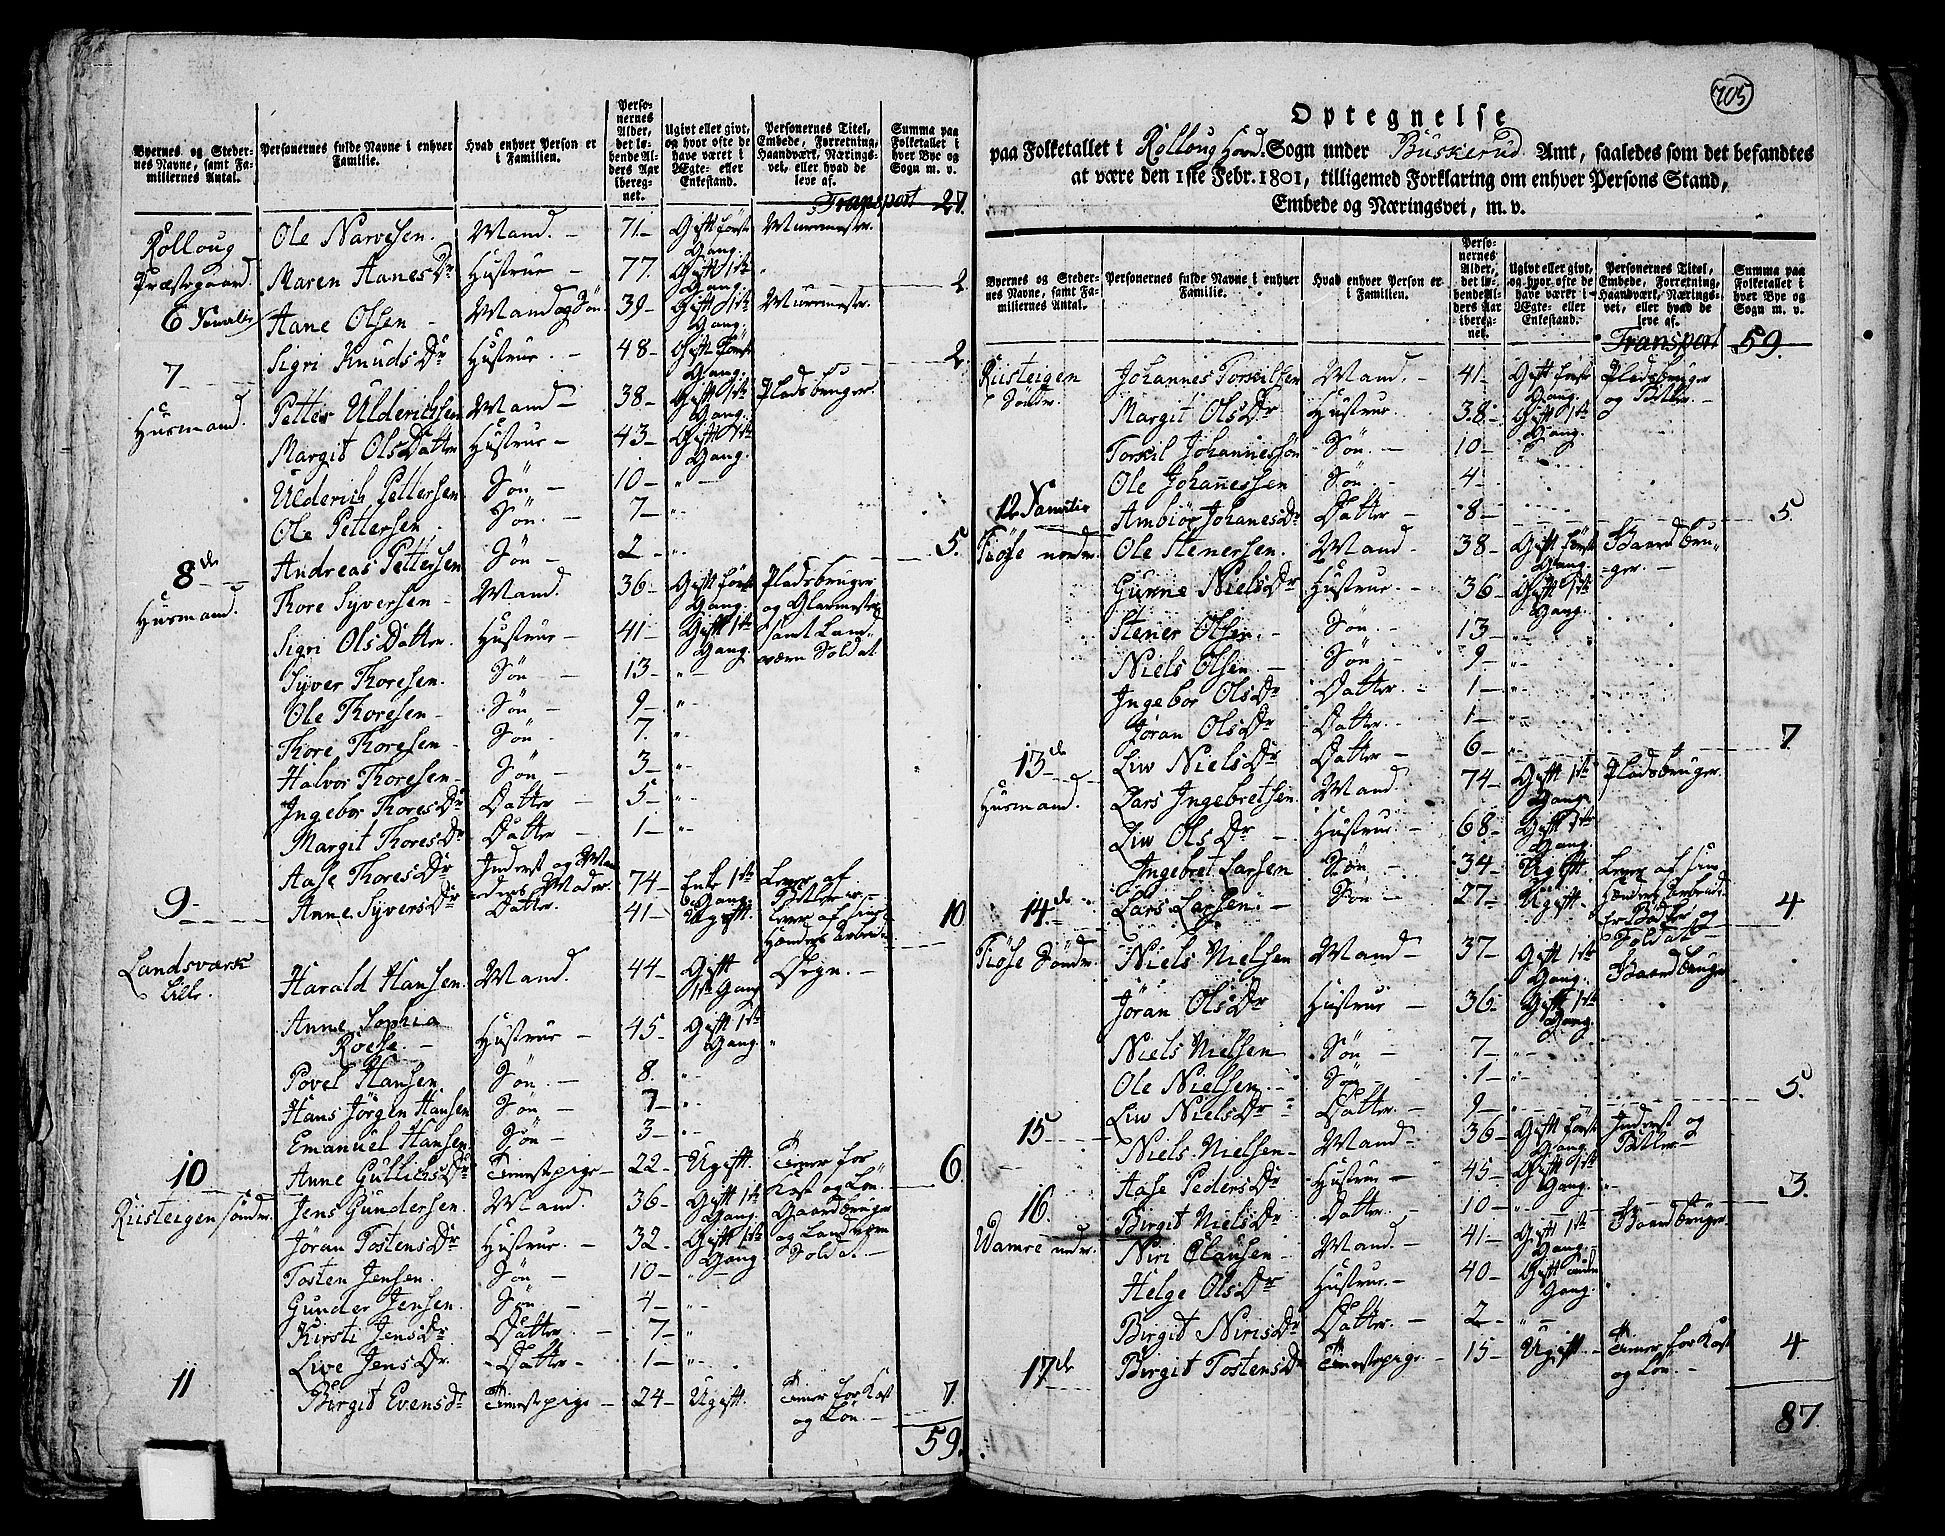 Byernes og Steder-
nes Navne, samt Fa-
miliernes Antal.
Personernes fulde Navne i enhver
Familie.
Hvad enhver Person er
i Familien.
Perso-
nernes
Alder,
det lø-
bende Al-
ders Aar
ibereg-
net.
Ugivt eller givt,
og hvor ofte de
have været i
Ægte- eller
Enkestand.
Personernes Titel,
Embede, Forretning,
Haandværk, Nærings-
vei, eller hvad de
leve af.
Summa paa
Folketallet i
hver Bye og
Sogn m. v.
Transport 27.
Rolloug Ole Narvesen. Mand. 71 Gift første Gang. Muurmester.
Præstegaard Maren Hanes Dr Hustrue 77. Gift 1ste Gang. 2
6 Familie Hane Olsen Mand og Søn 39 Gift 1ste Gang. Muurmester.
Sigri Knuds Dr Hustrue. 48 Gift første Gang. 2.
7
Husmand. Petter Ulderichsen Mand 38 Gift 1ste Gang. Pladsbruger.
Margit Ols Datter Hustrue 43 Gift 1ste Gang.
Ulderich Pettersen Søn 10
Ole Pettersen Søn. 7
Andreas Pettersen Søn 2 5.
8de
Husmand. Thore Syversen Mand. 36 Gift første Gang. Pladsbruger og Glarmester samt Land- værn Soldat
Sigri Ols Datter. Hustrue 41 Gift 1ste Gang.
Syver Thoresen. Søn 13
Ole Thoresen Søn 9
Thore Thoresen Søn 7.
Halvor Thoresen Søn 3
Ingebor Thores Dr Datter 5
Margit Thores Dr Datter 1
Aase Thores Dr Inderst og Moder 74 Enke 1ste Gang Lever af
9 Anne Syvers Dr Datter. 41 Ugift. Lever af sine Hænders Arbeide 10
Landsværk
Lille. Harald Hansen. Mand. 44 Gift 1ste Gang Degn.
Anne Sophia
Roese. Hustrue 45 Gift 1ste Gang
Povel Hansen. Søn. 8.
Hans Jörgen Hansen Søn 7
Emanuel Hansen Søn 3
10 Anne Gullichs Dr Tienestpige 22 Ugift. Tiener for Kost og Løn. 6
Riisteigen søndr. Jens Gundersen. Mand. 36 Gift 1ste Gang Gaardbruger og Landværn Soldat
Jöran Tostens Dr Hustrue. 32. Gift 1ste Gang
Tosten Jensen. Søn 10
Gunder Jensen. Søn 4
Kirsti Jens Dr Datter. 7
Live Jens Dr. Datter 1
11 Birgit Evens Dr Tienestpige 24 Ugift. Tiener for Kost og Løn 7.
59.
705
Optegnelse
paa Folketallet i Rolloug Hovd. Sogn under Buskerud Amt, saaledes som det befandtes
at være den 1ste Febr. 1801, tilligemed Forklaring om enhver Persons Stand,
Embede og Næringsvei, m. v.
Byernes og Steder-
nes Navne, samt Fa-
miliernes Antal.
Personernes fulde Navne i enhver
Familie.
Hvad enhver Person er
i Familien.
Perso-
nernes
Alder,
det lø-
bende Al-
ders Aar
ibereg-
net.
Ugivt eller givt,
og hvor ofte de
have været i
Ægte- eller
Enkestand.
Personernes Titel,
Embede, Forretning,
Haandværk, Nærings-
vei, eller hvad de
leve af.
Summa paa
Folketallet i
hver Bye og
Sogn m. v.
Transport 59.
Riisteigen
Søndr. Johannes Torkilsen Mand. 41 Gift første Gang. Pladsbruger og
Margit Ols Dr Hustrue. 38. Gift 1ste Gang.
Torkil Johannessön Søn. 10
Ole Johannessen Søn. 4
12 Familie Ambiör Johanes Dr Datter 8 5.
Fiöse nordr. Ole Stenersen. Mand 38 Gift første Gang. Gaardbru- ger.
Gunne Niels Dr Hustrue. 36 Gift 1ste Gang.
Stener Olsen. Søn. 13
Niels Olsen Søn 9
Ingebor Ols Dr Datter. 1
Jöran Ols Dr Datter. 1
13de Liv Niels Dr Datter 6 7
Husmand. Lars Ingebretsen. Mand 74 Gift 1ste Gang. Pladsbruger.
Liv Ols Dr Hustrue 68 Gift 1ste Gang.
Ingebret Larsen Søn 34 Ugift Lever af sine Hænders Arbeide
14de Lars Larsen. Søn 27 Ugift og Soldat 4
Fiöse Söndr. Niels Nielsen Mand 37 Gift 1ste Gang. Gaardbruger
Jöran Ols Dr Hustrue 36 Gift 1ste Gang.
Niels Nielsen Søn 7
Ole Nielsen. Søn 1
Liv Niels Dr Datter. 9 5.
15 Niels Nielsen Mand 36 Gift første Gang Inderst og
Aase Peders Dr Hustrue. 45 Gift 1ste Gang.
16. Birgit Niels Dr Datter. 10 3.
Wamre nedr. Niri Clausen Mand. 41 Gift 1ste Gang. Gaardbruger
Helge Ols Dr Hustrue. 40 Gift Gang.
Birgit Niris Dr Datter. 2
17de Birgit Tostens Dr Tienestpige 15 Ugift. Tiener for Kost og Løn. 4
87